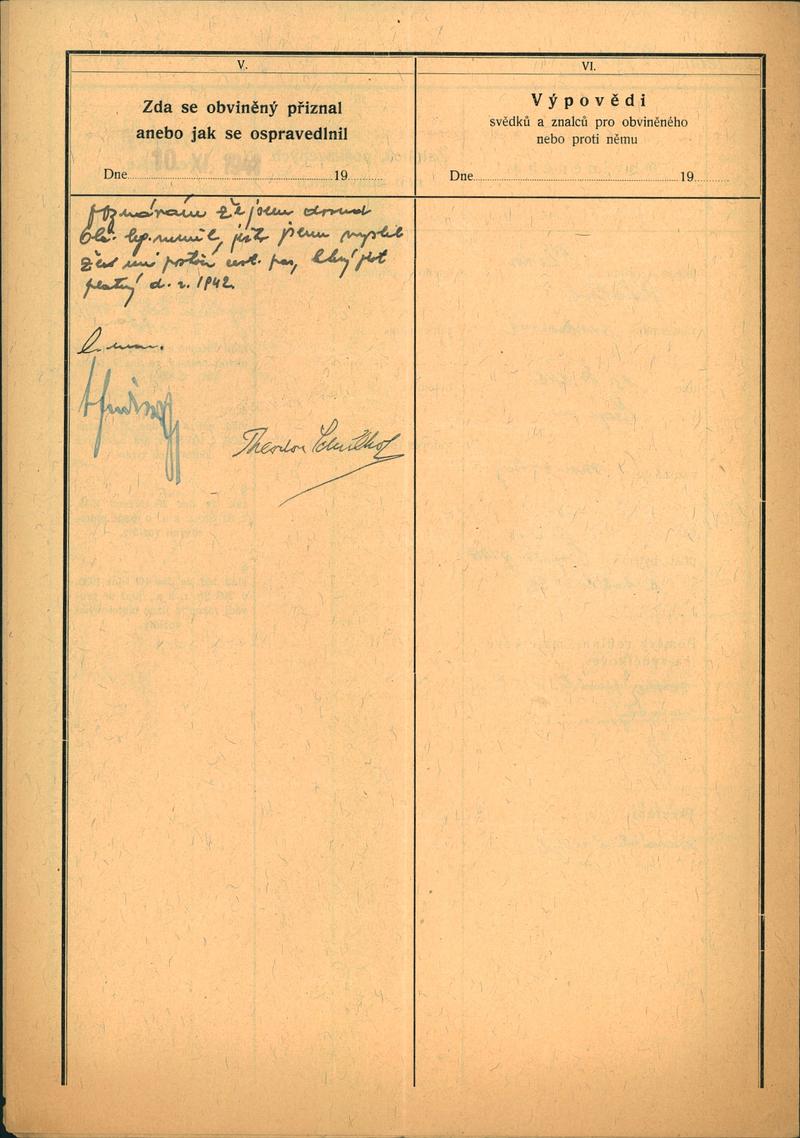 V.
Zda se obviněný přiznal
anebo jak se ospravedlnil
Dne 19
doznávám že jsem dosud
obč. leg. neměl, jež jsem myslil
že mi postačí cest. pas, který jest
platný d. r. 1942.
Theodor Schulhof
VI.
Výpovědi
svědků a znalců pro obviněného
nebo proti němu
Dne 19